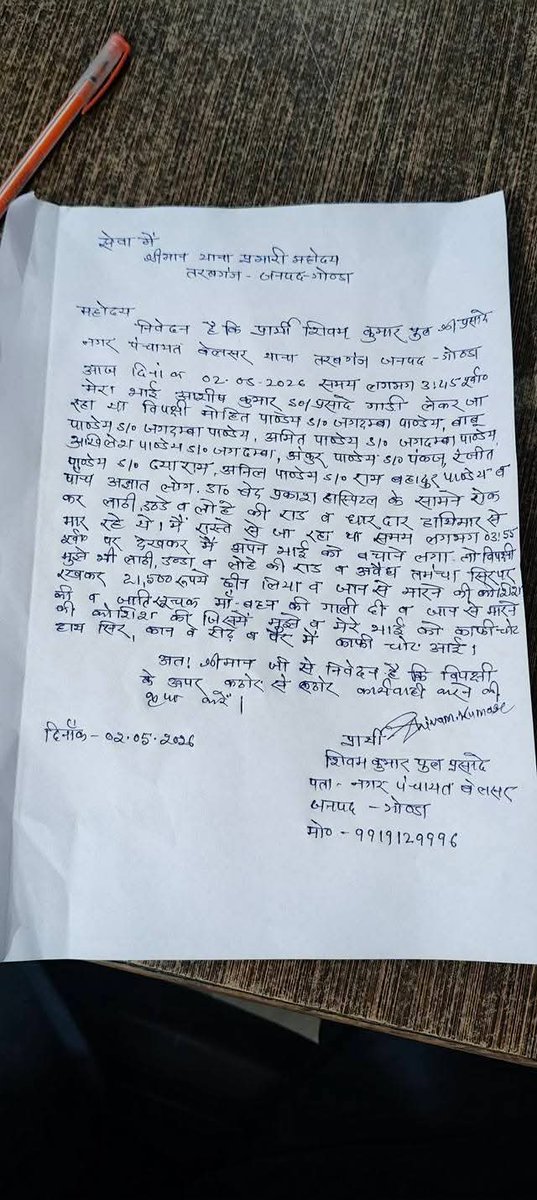 सेवा में
श्रीमान थाना प्रभारी महोदय
तरबगंज - जनपद-गोण्डा
महोदय
निवेदन है कि प्रार्थी शिवम कुमार पुत्र श्री प्रसादे
नगर पंचायत बेलसर थाना तरबगंज जनपद - गोण्डा
आज दिनांक 02.05.2026 समय लगभग 3:45
मेरा भाई आशीष कुमार S/o प्रसादे गाडी लेकर जा
रहा था विपक्षी मोहित पाण्डेय S/o जगदम्बा पाण्डेय, बाबू
पाण्डेय S/o जगदम्बा पाण्डेय, अमित पाण्डेय S/o जगदम्बा पाण्डेय,
अखिलेश पाण्डेय S/o जगदम्बा, अंकुर पाण्डेय S/o पंकज, रंजीत
पाण्डेय S/o दयाराम, अनिल पाण्डेय S/o राम बहादुर पाण्डेय व
पाँच अज्ञात लोग. डा० वेद प्रकाश हास्पिटल के सामने रोक
कर लाठी, डण्डे व लोहे की राड व धारदार हथियार से
मार रहे थे। मैं रास्ते से जा रहा था समय लगभग 03:55
पर देखकर मैं अपने भाई को बचाने लगा. तो विपक्षी
मुझे भी लाठी, डण्डा व लोहे की राड व अवैध तमंचा सिर पर
रखकर 21,500 रुपये छीन लिया व जान से मारने की कोशिश
की व जातिसूचक माँ-बहन की गाली दी व जान से मारने
की कोशिश की जिसमें मुझे व मेरे भाई को काफी चोट
हाथ सिर, कान व रीढ व पैर में काफी चोट आई।
अतः श्रीमान जी से निवेदन है कि विपक्षी
के ऊपर कठोर से कठोर कार्यवाही करने की
कृपा करें।
दिनाँक-02.05.2026
प्रार्थी Shivam Kumar
शिवम कुमार पुत्र प्रसादे
पता - नगर पंचायत बेलसर
जनपद - गोण्डा
मो० - 9919129996